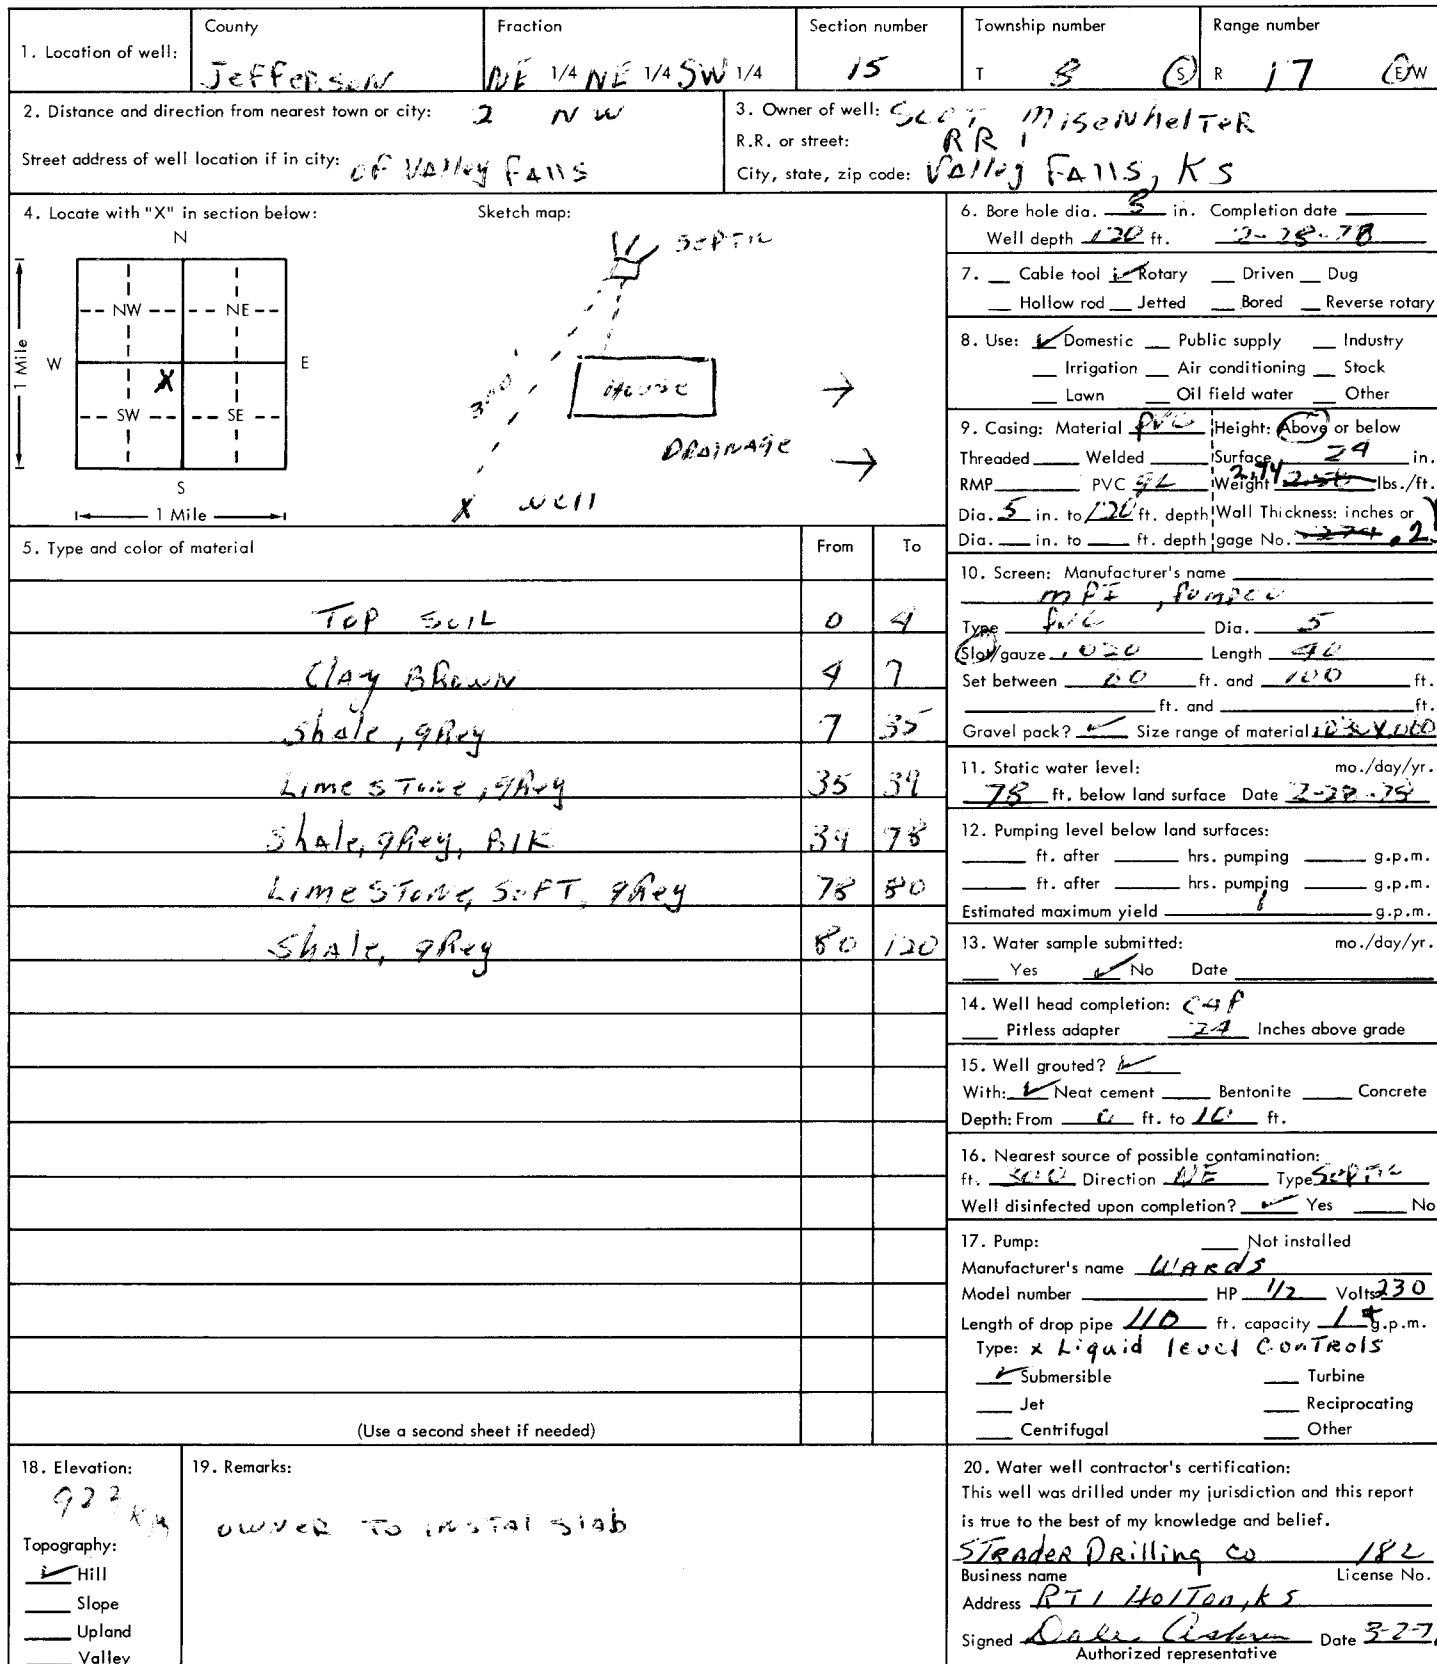 1. Location of well:
County
Jefferson
Fraction
NE 1/4 NE 1/4 SW 1/4
Section number
15
Township number
T 8 S
Range number
R 17 E/W
2. Distance and direction from nearest town or city: 2 NW
Street address of well location if in city: of Valley Falls
3. Owner of well: Scot Misenhelter
R.R. or street: RR 1
City, state, zip code: Valley Falls, KS
4. Locate with "X" in section below:
N
NW NE
W E
X
SW SE
S
1 Mile
1 Mile
Sketch map:
Septic
House
300'
Drainage
X well
5. Type and color of material From To
Top Soil 0 4
Clay Brown 4 7
Shale, grey 7 35
Limestone, grey 35 39
Shale, grey, Blk 39 78
Limestone, Soft, grey 78 80
Shale, grey 80 120
(Use a second sheet if needed)
6. Bore hole dia. 8 in. Completion date
Well depth 120 ft. 2-28-78
7. Cable tool Rotary Driven Dug
Hollow rod Jetted Bored Reverse rotary
8. Use: Domestic Public supply Industry
Irrigation Air conditioning Stock
Lawn Oil field water Other
9. Casing: Material PVC Height: Above or below
Threaded Welded Surface 24 in.
RMP PVC GL Weight 2.74 lbs./ft.
Dia. 5 in. to 120 ft. depth Wall Thickness: inches or
Dia. in. to ft. depth gage No.
10. Screen: Manufacturer's name
MPI
Type PVC Dia. 5
Slot/gauze .020 Length 40
Set between 60 ft. and 100 ft.
ft. and ft.
Gravel pack? Size range of material
11. Static water level: mo./day/yr.
78 ft. below land surface Date 2-28-78
12. Pumping level below land surfaces:
ft. after hrs. pumping g.p.m.
ft. after hrs. pumping g.p.m.
Estimated maximum yield 1 g.p.m.
13. Water sample submitted: mo./day/yr.
Yes No Date
14. Well head completion: cap
Pitless adapter 24 Inches above grade
15. Well grouted?
With: Neat cement Bentonite Concrete
Depth: From 0 ft. to 10 ft.
16. Nearest source of possible contamination:
ft. 300 Direction NE Type Septic
Well disinfected upon completion? Yes No
17. Pump: Not installed
Manufacturer's name Wards
Model number HP 1/2 Volts 230
Length of drop pipe 110 ft. capacity 1+ g.p.m.
Type: x Liquid level Controls
Submersible Turbine
Jet Reciprocating
Centrifugal Other
18. Elevation:
Topography:
Hill
Slope
Upland
Valley
19. Remarks:
owner to instal slab
20. Water well contractor's certification:
This well was drilled under my jurisdiction and this report
is true to the best of my knowledge and belief.
Strader Drilling Co 182
Business name License No.
Address RT 1 Holton, KS
Signed Dale Date
Authorized representative